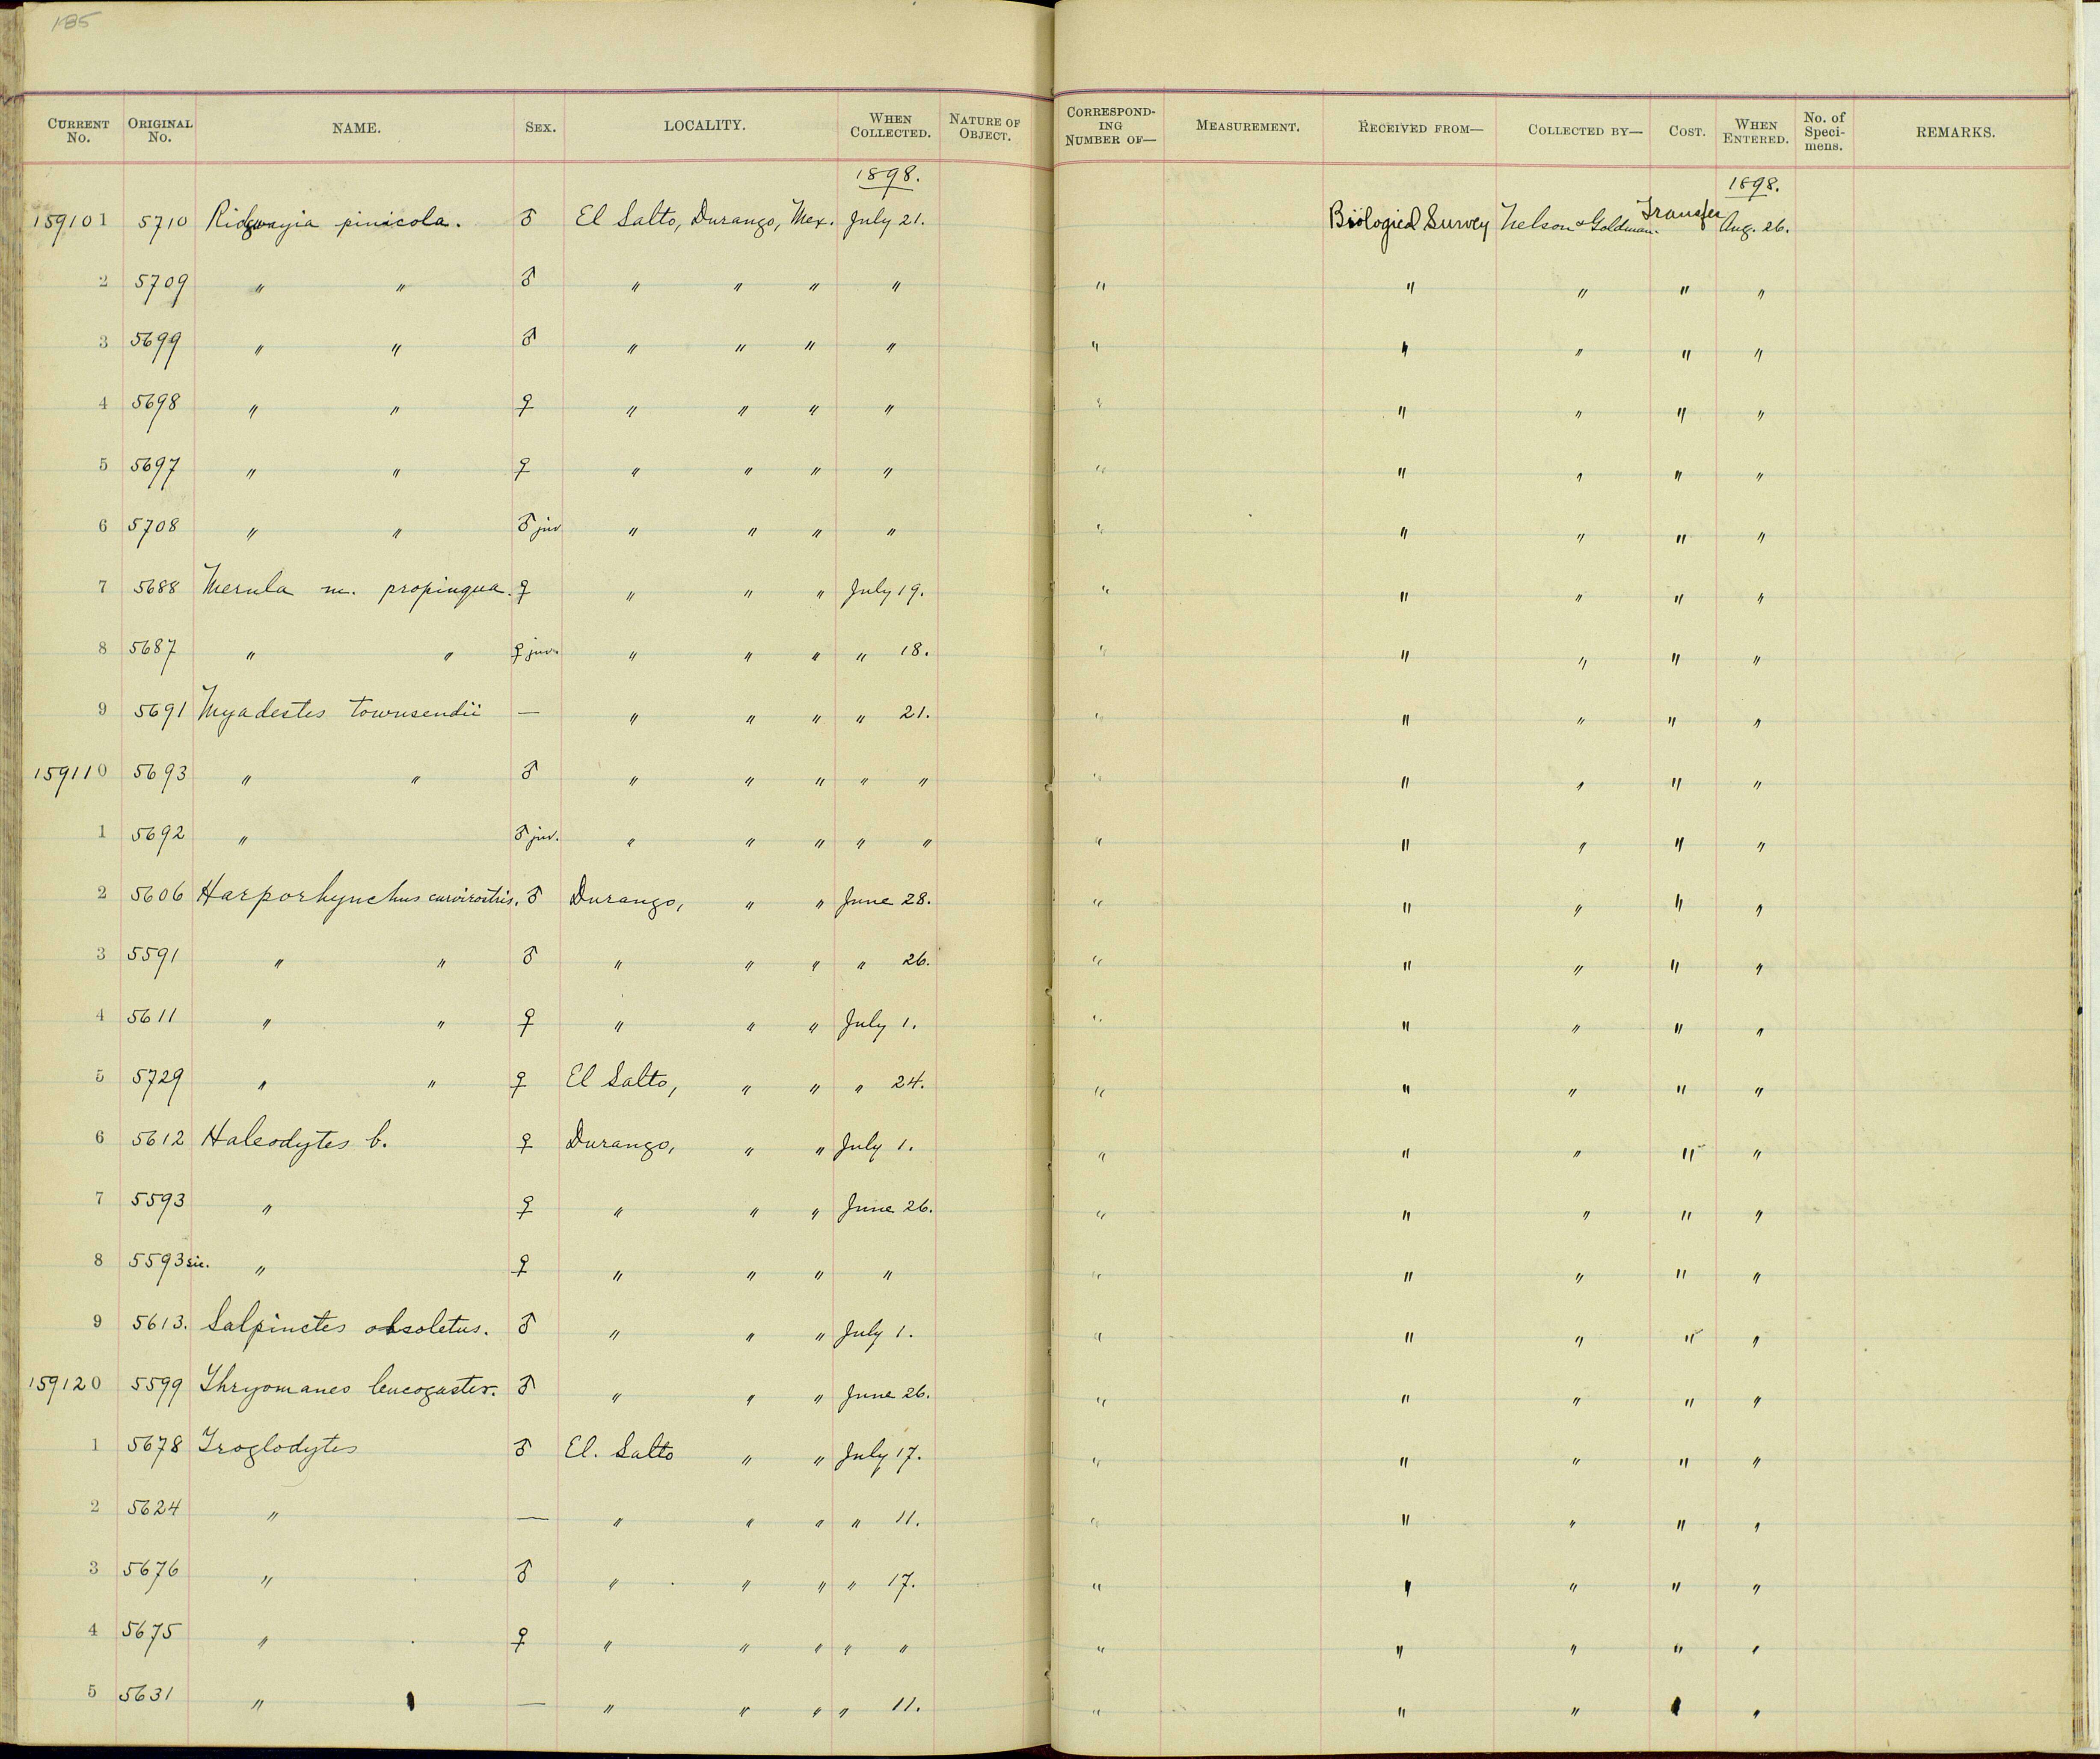 185
CURRENT No. ORIGINAL No. NAME. SEX. LOCALITY. WHEN COLLECTED. NATURE OF OBJECT. CORRESPONDING NUMBER OF— MEASUREMENT. RECEIVED FROM— COLLECTED BY— COST. WHEN ENTERED. No. of Specimens. REMARKS.
1898. 1898.
159101 5710 Ridgwayia pinicola. ♂ El Salto, Durango, Mex. July 21. Biological Survey Nelson & Goldman. Transfer Aug. 26.
2 5709 " " ♂ " " " " " " " " "
3 5699 " " ♂ " " " " " " " " "
4 5698 " " ♀ " " " " " " " " "
5 5697 " " ♀ " " " " " " " " "
6 5708 " " ♂ juv " " " " " " " " "
7 5688 Merula m. propinqua. ♀ " " " July 19. " " " " "
8 5687 " " ♀ juv. " " " " 18. " " " " "
9 5691 Myadestes townsendii — " " " " 21. " " " " "
159110 5693 " " ♂ " " " " " " " " " "
1 5692 " ♂ juv. " " " " " " " " " "
2 5606 Harporhynchus curvirostris. ♂ Durango, " " June 28. " " " " "
3 5591 " " ♂ " " " " 26. " " " " "
4 5611 " " ♀ " " " July 1. " " " " "
5 5729 " " ♀ El Salto, " " " 24. " " " " "
6 5612 Haleodytes b. ♀ Durango, " " July 1. " " " " "
7 5593 " ♀ " " " June 26. " " " " "
8 5593 sic. " ♀ " " " " " " " " "
9 5613. Salpinctes obsoletus. ♂ " " " July 1. " " " " "
159120 5599 Thryomanes leucogaster. ♂ " " " June 26. " " " " "
1 5678 Troglodytes ♂ El. Salto " " July 17. " " " " "
2 5624 " — " " " " 11. " " " " "
3 5676 " ♂ " " " " 17. " " " " "
4 5675 " ♀ " " " " " " " " " "
5 5631 " — " " " " 11. " " " "